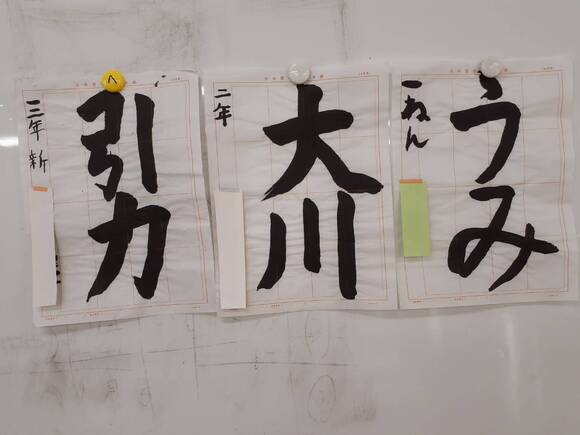 うみ
一ねん
大川
二年
引力
三年 新
へ